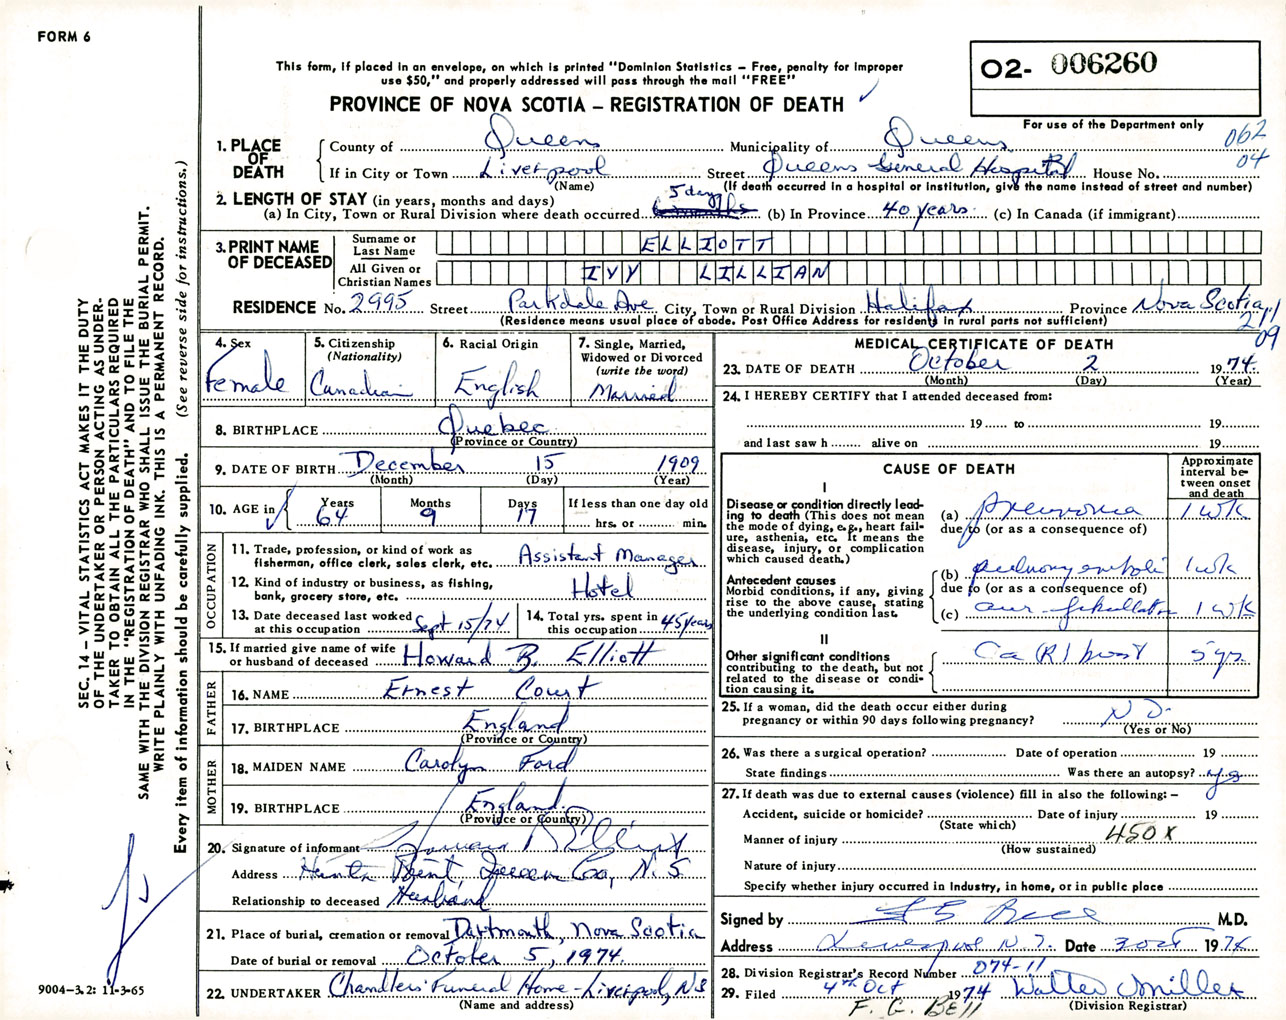 FORM 6
This form, if placed in an envelope, on which is printed "Dominion Statistics – Free, penalty for improper
use $50," and properly addressed will pass through the mail "FREE"
PROVINCE OF NOVA SCOTIA – REGISTRATION OF DEATH
02- 006260
For use of the Department only
062
04
1. PLACE OF DEATH
County of Queens Municipality of Queens
If in City or Town Liverpool Street Queens General Hospital House No.
(Name) (If death occurred in a hospital or institution, give the name instead of street and number)
2. LENGTH OF STAY (in years, months and days)
(a) In City, Town or Rural Division where death occurred 5 days (b) In Province 40 years (c) In Canada (if immigrant)
3. PRINT NAME OF DECEASED
Surname or Last Name ELLIOTT
All Given or Christian Names IVY LILLIAN
RESIDENCE No. 2995 Street Parkdale Ave City, Town or Rural Division Halifax Province Nova Scotia
(Residence means usual place of abode. Post Office Address for residents in rural parts not sufficient)
211
09
4. Sex
Female
5. Citizenship
(Nationality)
Canadian
6. Racial Origin
English
7. Single, Married,
Widowed or Divorced
(write the word)
Married
8. BIRTHPLACE Quebec
(Province or Country)
9. DATE OF BIRTH December 15 1909
(Month) (Day) (Year)
10. AGE in
Years Months Days If less than one day old
64 9 17 hrs. or min.
OCCUPATION
11. Trade, profession, or kind of work as
fisherman, office clerk, sales clerk, etc. Assistant Manager
12. Kind of industry or business, as fishing,
bank, grocery store, etc. Hotel
13. Date deceased last worked
at this occupation Sept 15/74
14. Total yrs. spent in
this occupation 45 years
15. If married give name of wife
or husband of deceased Howard B. Elliott
FATHER
16. NAME Ernest Court
17. BIRTHPLACE England
(Province or Country)
MOTHER
18. MAIDEN NAME Carolyn Ford
19. BIRTHPLACE England
(Province or Country)
20. Signature of informant Howard B Elliott
Address Hunts Point, Queens Co, N.S.
Relationship to deceased Husband
21. Place of burial, cremation or removal Dartmouth, Nova Scotia
Date of burial or removal October 5, 1974.
22. UNDERTAKER Chandlers' Funeral Home - Liverpool, NS
(Name and address)
MEDICAL CERTIFICATE OF DEATH
23. DATE OF DEATH October 2 1974.
(Month) (Day) (Year)
24. I HEREBY CERTIFY that I attended deceased from:
19 to 19
and last saw h alive on 19
CAUSE OF DEATH
Approximate
interval be-
tween onset
and death
I
Disease or condition directly lead-
ing to death (This does not mean
the mode of dying, e.g., heart fail-
ure, asthenia, etc. It means the
disease, injury, or complication
which caused death.)
(a) Pneumonia 1 wk
due to (or as a consequence of)
Antecedent causes
Morbid conditions, if any, giving
rise to the above cause, stating
the underlying condition last.
(b) pulmonary emboli 1 wk
due to (or as a consequence of)
(c) aur. fibrillation 1 wk
II
Other significant conditions
contributing to the death, but not
related to the disease or condi-
tion causing it.
Ca (R) breast 5 yrs
25. If a woman, did the death occur either during
pregnancy or within 90 days following pregnancy? NO.
(Yes or No)
26. Was there a surgical operation? Date of operation 19
State findings Was there an autopsy? yes
27. If death was due to external causes (violence) fill in also the following: –
Accident, suicide or homicide? Date of injury 19
(State which)
Manner of injury 450X
(How sustained)
Nature of injury
Specify whether injury occurred in industry, in home, or in public place
Signed by M.D.
Address Liverpool N.S. Date 3 Oct 1974
28. Division Registrar's Record Number 074-11
29. Filed 4th Oct 1974 Walter Miller
(Division Registrar)
F. G. Bell
SEC. 14 – VITAL STATISTICS ACT MAKES IT THE DUTY
OF THE UNDERTAKER OR PERSON ACTING AS UNDER-
TAKER TO OBTAIN ALL THE PARTICULARS REQUIRED
IN THE "REGISTRATION OF DEATH" AND TO FILE THE
SAME WITH THE DIVISION REGISTRAR WHO SHALL ISSUE THE BURIAL PERMIT.
WRITE PLAINLY WITH UNFADING INK. THIS IS A PERMANENT RECORD.
Every item of information should be carefully supplied. (See reverse side for instructions.)
9004-3.2: 11-3-65